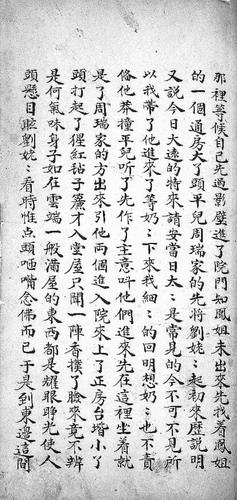 那裡等候自己先過影壁進了院門知鳳姐未出來先找着鳳姐
的一個通房大丫頭平兒周瑞家的先將劉姥〻起初來歷說明
又說今日大遠的特來請安當日太〻是常見的今不可不見所
以我帶了他進來了等奶〻下來我細〻的回明想奶〻也不責
俻他莽撞平兒听了先作了主意叫他們進來先在這裡坐着就
是了周瑞家的方出來引他兩個進入院來上了正房台堦小丫
頭打起了猩紅毡子簾才入堂屋只聞一陣香撲了臉來竟不辨
是何氣味身子如在雲端一般滿屋的東西都是耀眼睁光使人
頭懸目眩劉姥〻看時惟点頭咂嘴念佛而已于是到東邉這間